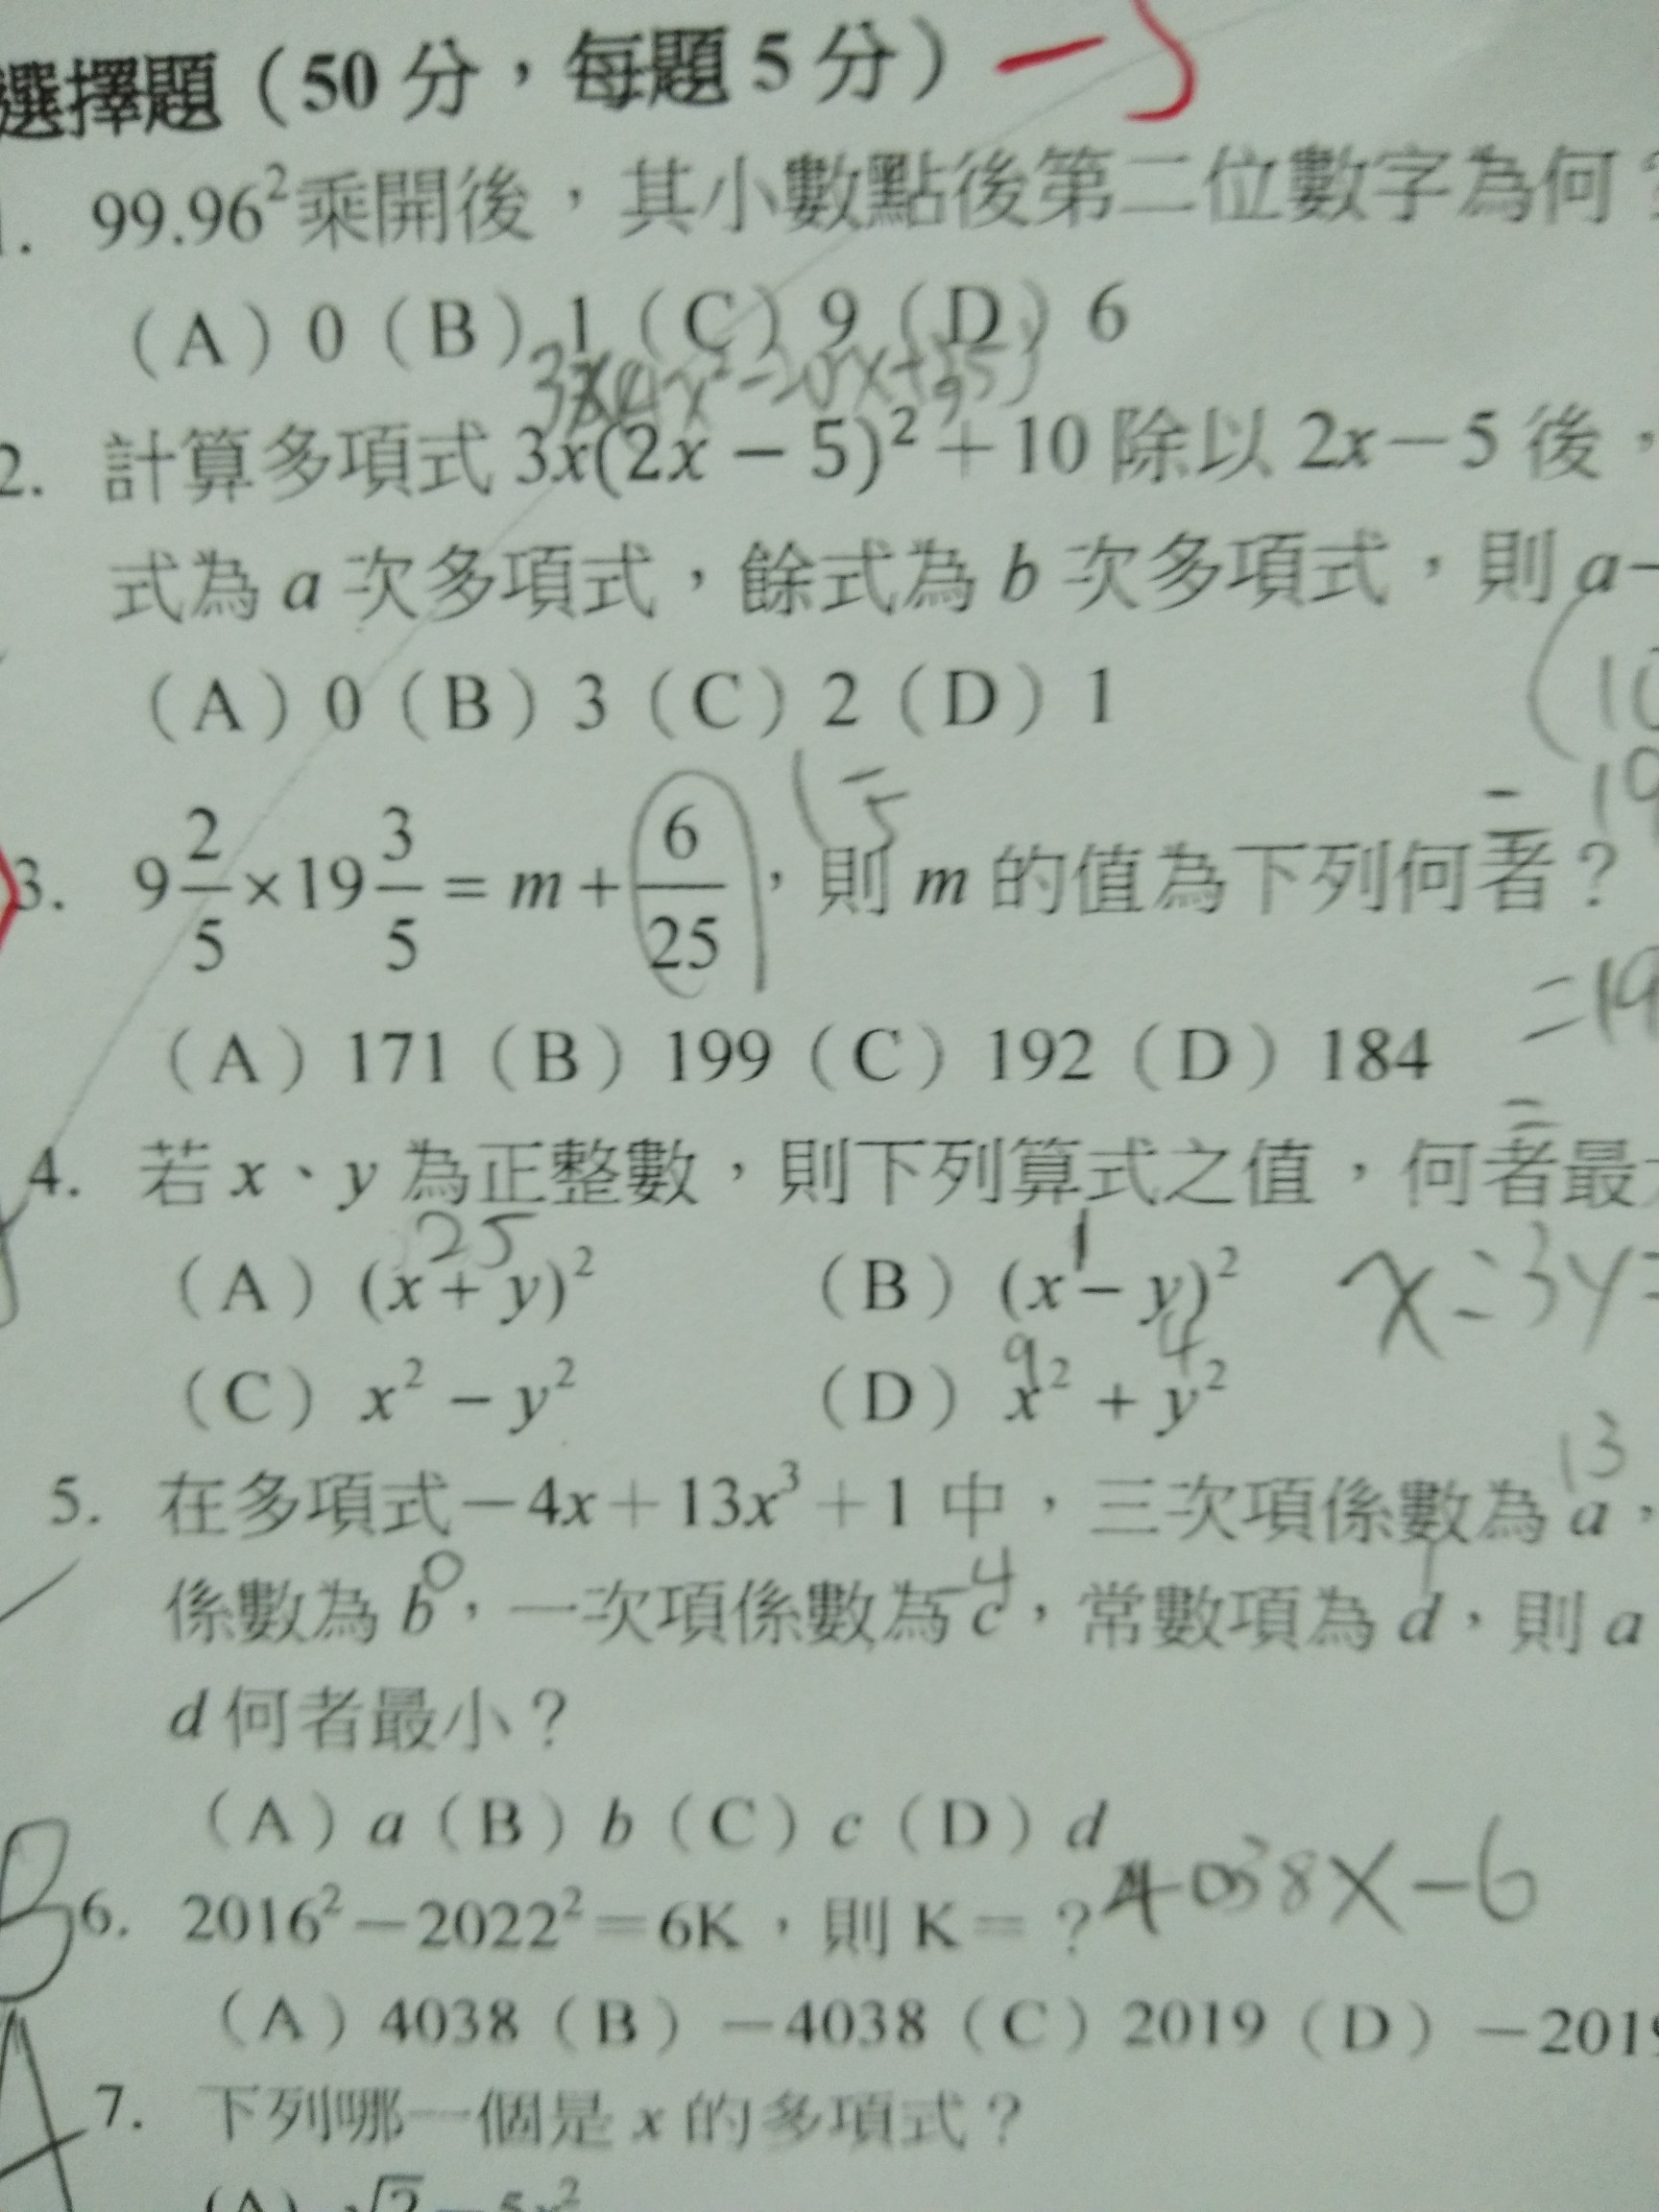 選擇題（50 分，每題 5 分） －5
1. 99.96²乘開後，其小數點後第二位數字為何？
（A）0（B）1（C）9（D）6
2. 計算多項式 3x(2x－5)²＋10 除以 2x－5 後，
式為 a 次多項式，餘式為 b 次多項式，則 a－
（A）0（B）3（C）2（D）1
3. 9 2/5 × 19 3/5 = m + 6/25，則 m 的值為下列何者？
（A）171（B）199（C）192（D）184
4. 若 x、y 為正整數，則下列算式之值，何者最大
25 1
（A）(x + y)² （B）(x − y)² x=3y=
9 4
（C）x² − y² （D）x² + y²
13
5. 在多項式－4x＋13x³＋1 中，三次項係數為 a，
0 -4 1
係數為 b，一次項係數為 c，常數項為 d，則 a
d 何者最小？
（A）a（B）b（C）c（D）d
B 6. 2016²－2022²＝6K，則 K＝？4038X-6
（A）4038（B）－4038（C）2019（D）－2019
A 7. 下列哪一個是 x 的多項式？
(A) √2 − 5x²